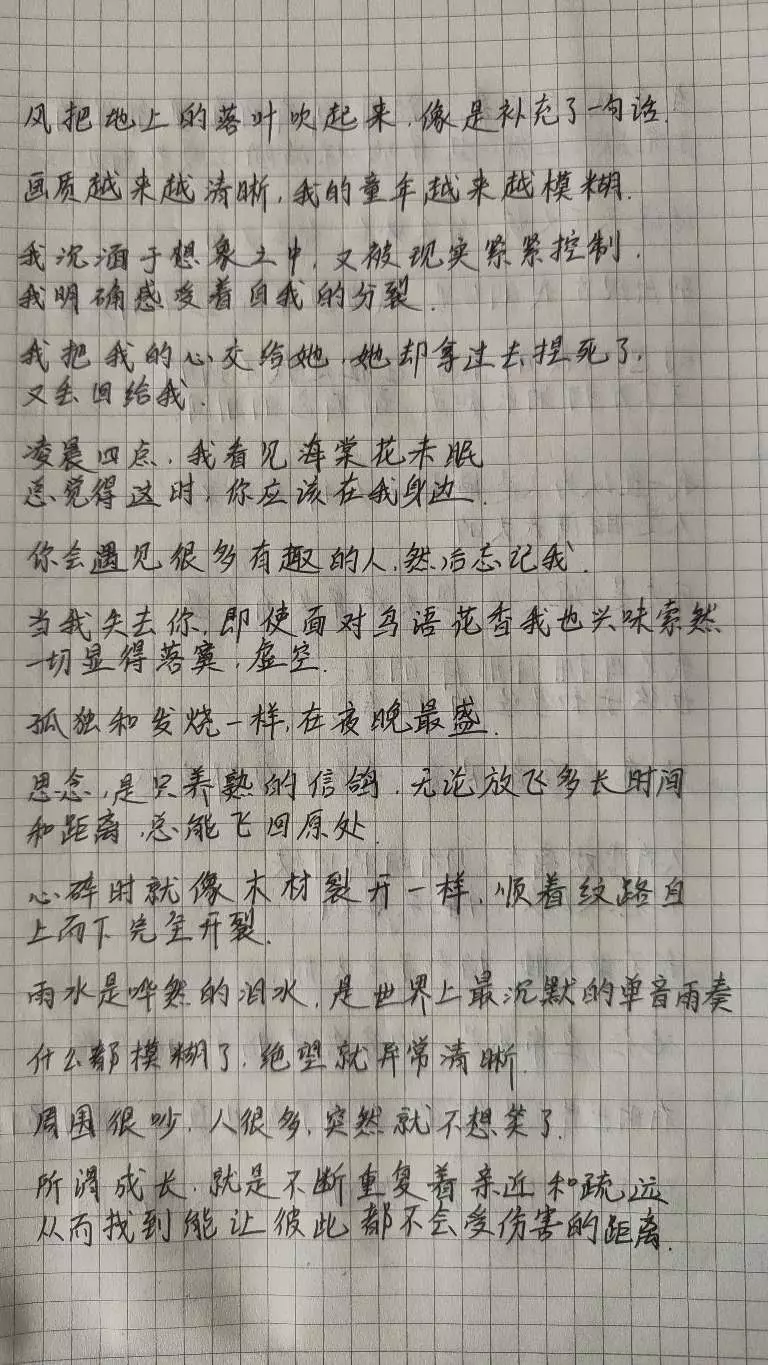 风把地上的落叶吹起来,像是补充了一句话.
画质越来越清晰,我的童年越来越模糊.
我沉湎于想象之中,又被现实紧紧控制.
我明确感受着自我的分裂.
我把我的心交给她,她却拿过去捏死了,
又丢回给我.
凌晨四点,我看见海棠花未眠
总觉得这时,你应该在我身边.
你会遇见很多有趣的人,然后忘记我.
当我失去你,即使面对鸟语花香我也兴味索然
一切显得落寞,虚空.
孤独和发烧一样,在夜晚最盛.
思念,是只养熟的信鸽,无论放飞多长时间
和距离,总能飞回原处.
心碎时就像木材裂开一样,顺着纹路自
上而下完全开裂.
雨水是哗然的泪水,是世界上最沉默的单音雨奏
什么都模糊了,绝望就异常清晰.
周围很吵,人很多,突然就不想笑了.
所谓成长,就是不断重复着亲近和疏远
从而找到能让彼此都不会受伤害的距离.